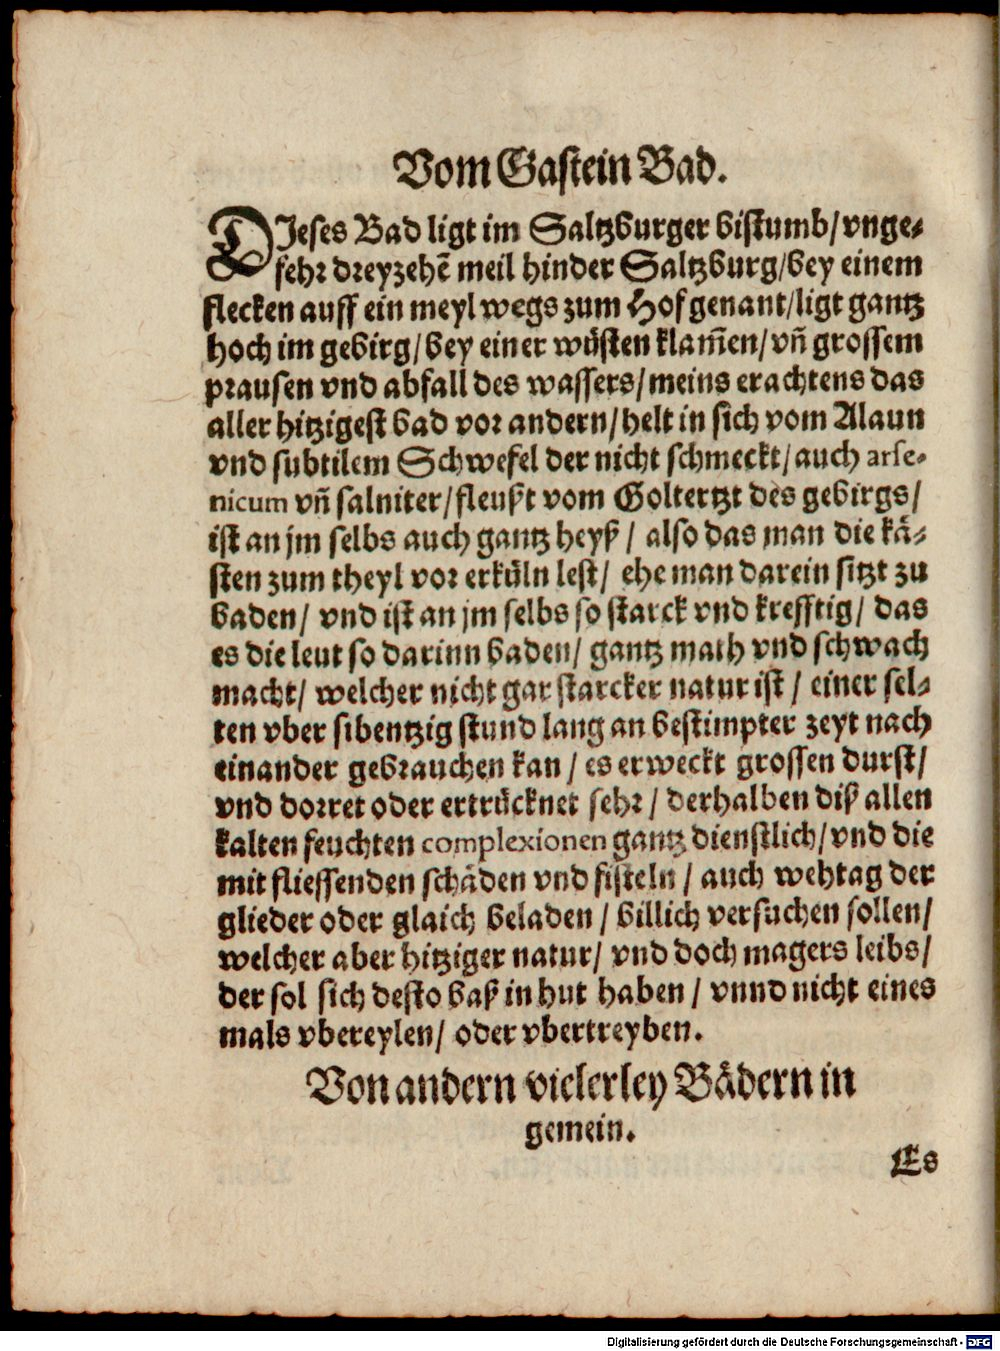 Vom Gastein Bad.
DJeses Bad ligt im Saltzburger bistumb/vnge-
fehr dreyzehẽ meil hinder Saltzburg/bey einem
flecken auff ein meyl wegs zum Hof genant/ligt gantz
hoch im gebirg/bey einer wůsten klam̃en/vñ grossem
prausen vnd abfall des wassers/meins erachtens das
aller hitzigest bad vor andern/helt in sich vom Alaun
vnd subtilem Schwefel der nicht schmeckt/auch arse-
nicum vñ salniter/fleußt vom Goltertzt des gebirgs/
ist an jm selbs auch gantz heyß / also das man die kå-
sten zum theyl vor erkůln lest/ ehe man darein sitzt zu
baden/ vnd ist an jm selbs so starck vnd krefftig/ das
es die leut so darinn baden/ gantz math vnd schwach
macht/ welcher nicht gar starcker natur ist / einer sel-
ten vber sibentzig stund lang an bestimpter zeyt nach
einander gebrauchen kan / es erweckt grossen durst/
vnd dorret oder ertrůcknet sehr / derhalben diß allen
kalten feuchten complexionen gantz dienstlich/vnd die
mit fliessenden schåden vnd fisteln / auch wehtag der
glieder oder glaich beladen / billich versuchen sollen/
welcher aber hitziger natur/ vnd doch magers leibs/
der sol sich desto baß in hut haben / vnnd nicht eines
mals vbereylen/ oder vbertreyben.
Von andern vielerley Bådern in
gemein.
Es
Digitalisierung gefördert durch die Deutsche Forschungsgemeinschaft - DFG